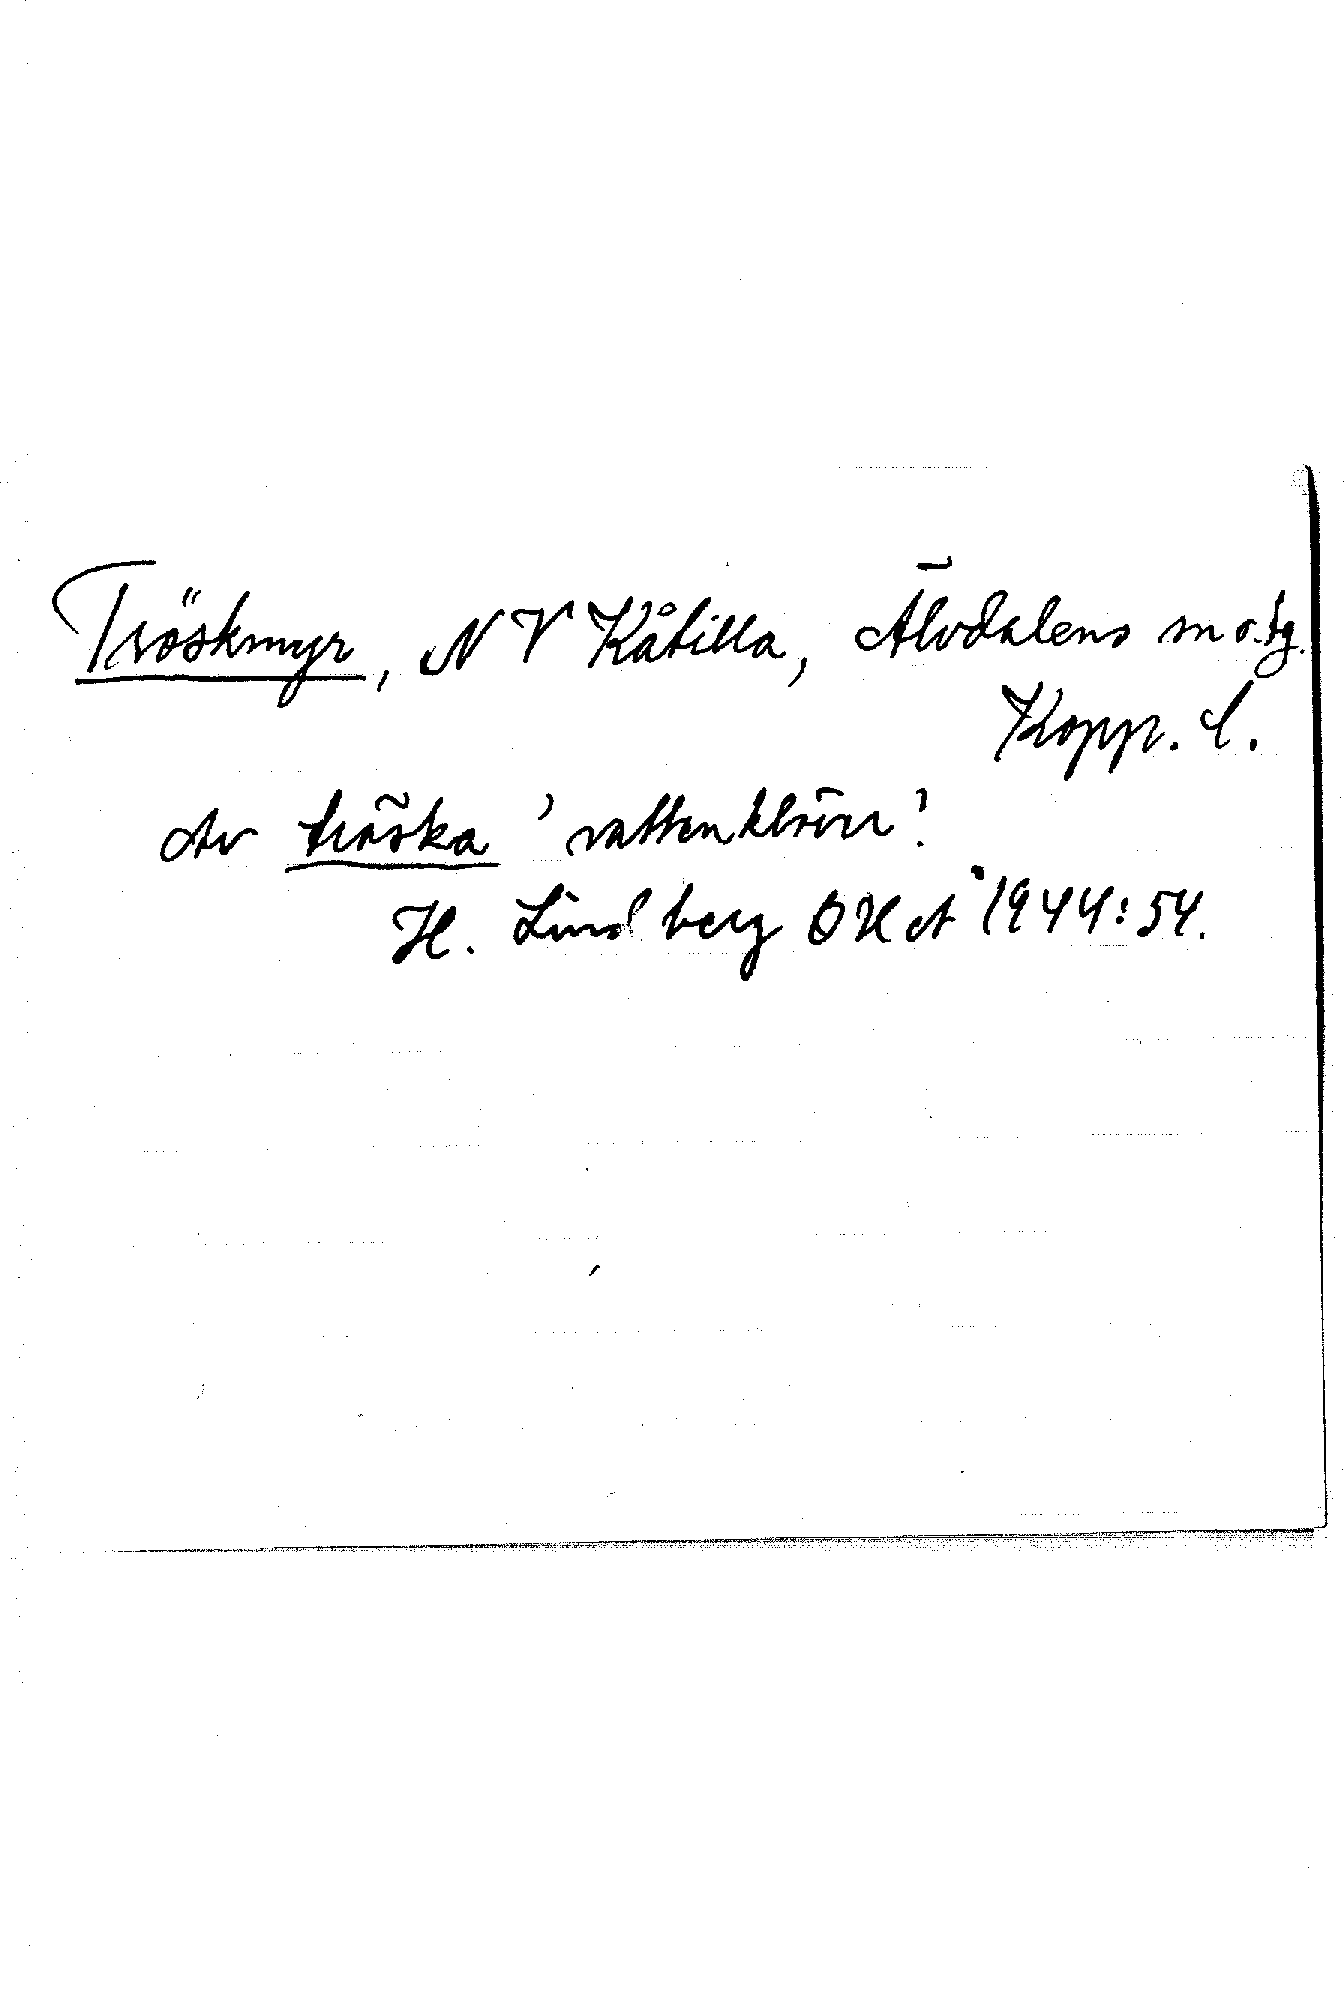 Tröskmyr, NV Kåtilla, Älvdalens m o. tg.
Kopp. l.
Av tröska 'vattenklöver'.
H. Lindberg OHA 1944:54.